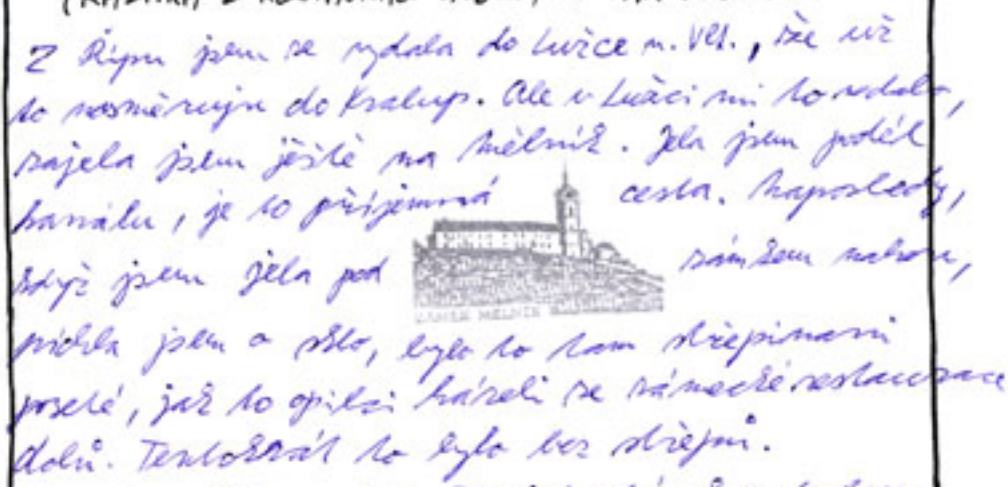 Z Řípu jsem se vydala do Lužce n. Vlt., že už
to nasměruju do Kralup. Ale v Lužci mi to nedalo,
zajela jsem ještě na Mělník. Jela jsem podél
kanálu, je to příjemná cesta. Naposledy,
když jsem jela pod zámkem nahoru,
ZÁMEK MĚLNÍK
píchla jsem o sklo, bylo to tam střepinami
poseté, jak to opilci házeli ze zámecké restaurace
dolů. Tentokrát to bylo bez střepů.